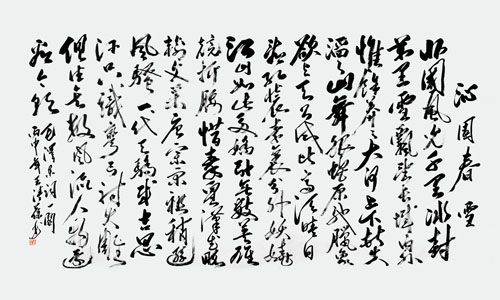 沁園春 雪
北國風光千里冰封
萬里雪飄望長城內外
惟餘莽莽大河上下頓失
滔滔山舞銀蛇原馳蠟象
欲與天公試比高須晴日
看紅裝素裹分外妖嬈
江山如此多嬌引無數英雄
競折腰惜秦皇漢武略
輸文采唐宗宋祖稍遜
風騷一代天驕成吉思
汗只識彎弓射大雕
俱往矣數風流人物還
看今朝 毛澤東詞一闋
丙申年